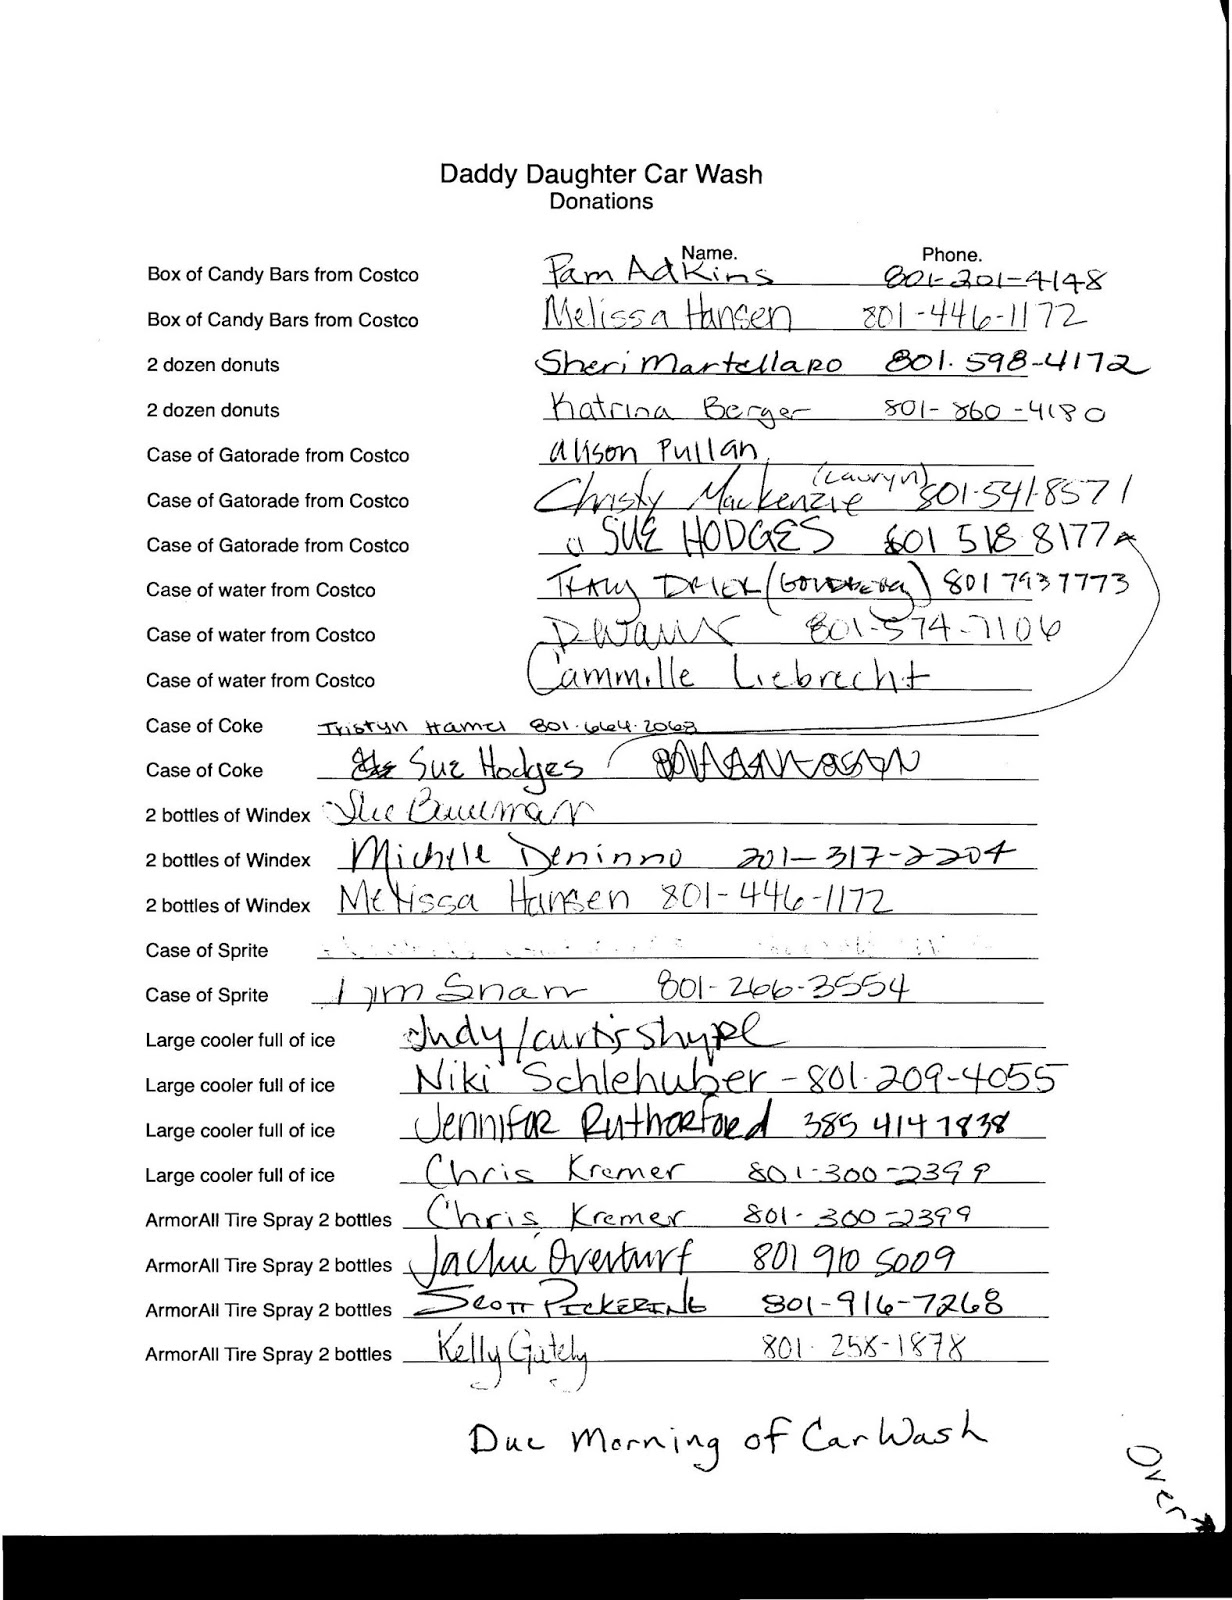 Daddy Daughter Car Wash
Donations
Name. Phone.
Box of Candy Bars from Costco Pam Adkins 801-201-4148
Box of Candy Bars from Costco Melissa Hansen 801-446-1172
2 dozen donuts Sheri Martellaro 801.598-4172
2 dozen donuts Katrina Berger 801-860-4180
Case of Gatorade from Costco Alison Pullan
Case of Gatorade from Costco Christy Mackenzie (Lauryn) 801-541-8571
Case of Gatorade from Costco SUE HODGES 801 518 8177
Case of water from Costco 801 793 7773
Case of water from Costco 801-574-7106
Case of water from Costco Cammille Liebrecht
Case of Coke Tristyn Hamel 801-664-2068
Case of Coke Sue Hodges
2 bottles of Windex
2 bottles of Windex Michele Deninno 201-317-2204
2 bottles of Windex Melissa Hansen 801-446-1172
Case of Sprite
Case of Sprite Snarr 801-266-3554
Large cooler full of ice Judy/Curtis Shype
Large cooler full of ice Niki Schlehuber - 801.209-4055
Large cooler full of ice Jennifer Rutherford 385 414 7838
Large cooler full of ice Chris Kremer 801-300-2399
ArmorAll Tire Spray 2 bottles Chris Kremer 801-300-2399
ArmorAll Tire Spray 2 bottles Jackie Overturf 801 910 5009
ArmorAll Tire Spray 2 bottles Scott Pickering 801-916-7268
ArmorAll Tire Spray 2 bottles Kelly Gately 801-258-1878
Due Morning of Car Wash
Over